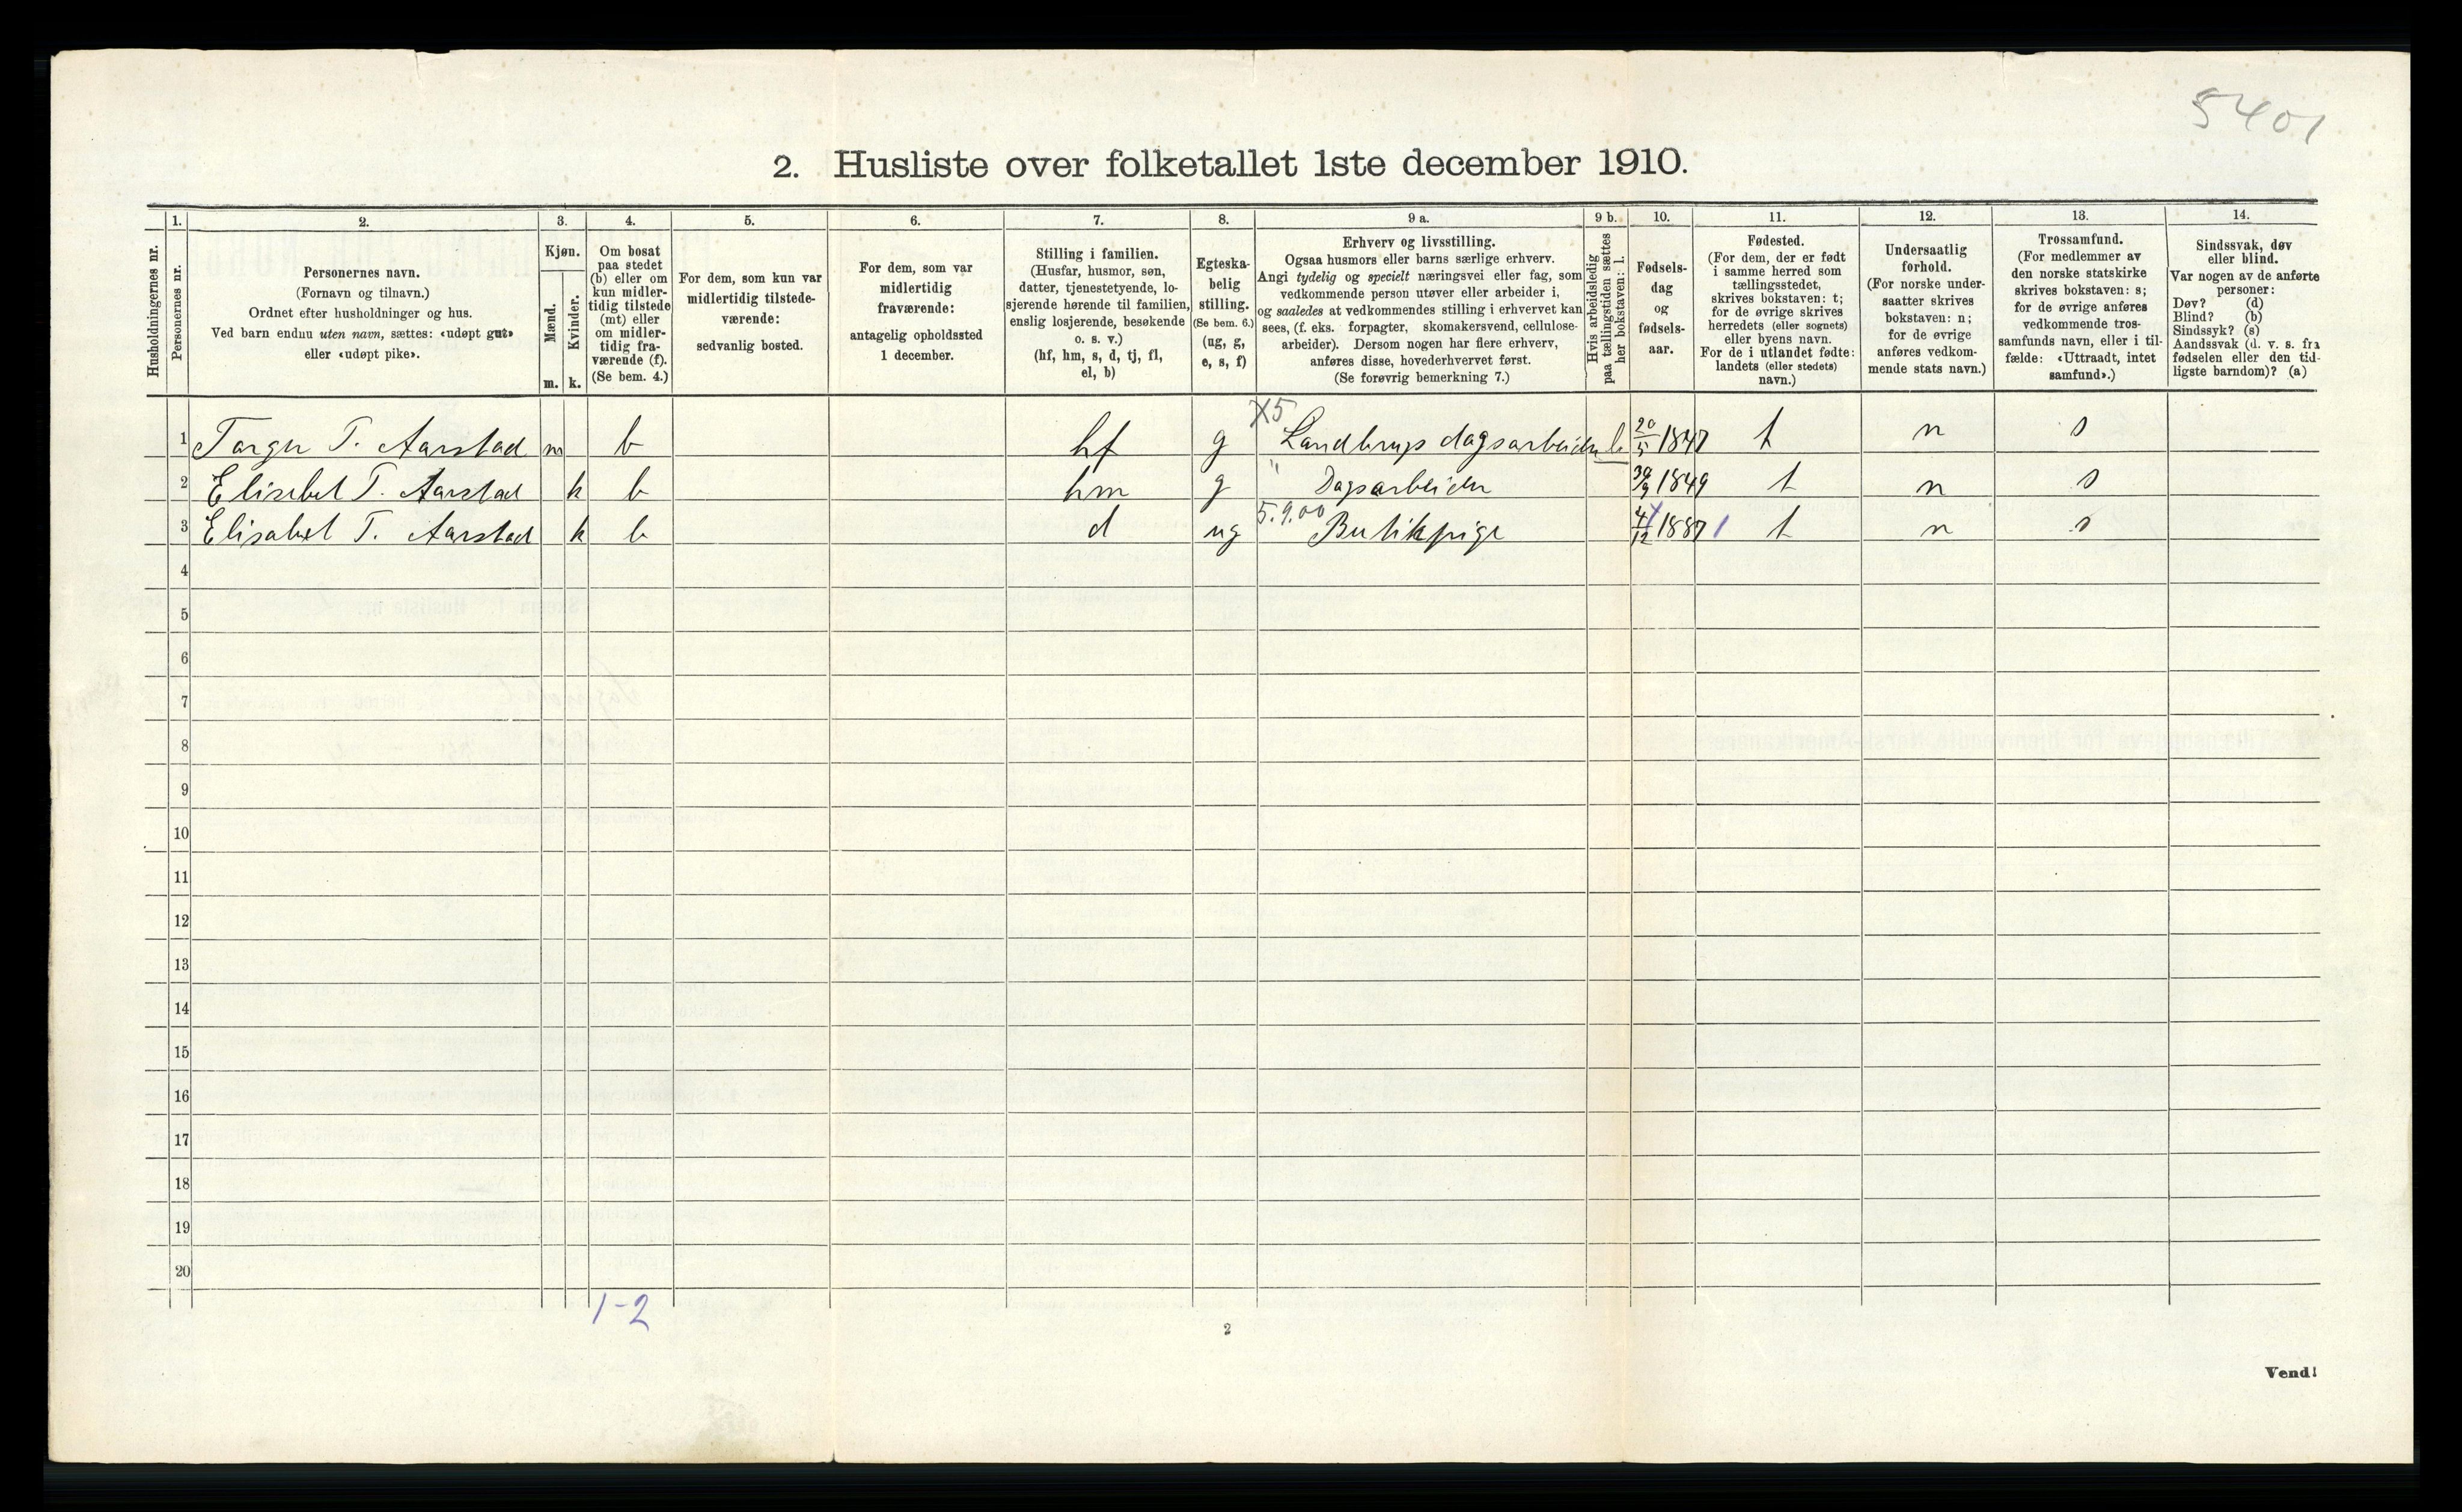 5401
2. Husliste over folketallet 1ste december 1910.
1. 2. 3. 4. 5. 6. 7. 8. 9 a. 9 b. 10. 11. 12. 13. 14.
Husholdningernes nr.
Personernes nr.
Personernes navn.
(Fornavn og tilnavn.)
Ordnet efter husholdninger og hus.
Ved barn endnu uten navn, sættes: «udøpt gut»
eller «udøpt pike».
Kjøn.
Mænd.
Kvinder.
m. k.
Om bosat
paa stedet
(b) eller om
kun midler-
tidig tilstede
(mt) eller
om midler-
tidig fra-
værende (f).
(Se bem. 4.)
For dem, som kun var
midlertidig tilstede-
værende:
sedvanlig bosted.
For dem, som var
midlertidig
fraværende:
antagelig opholdssted
1 december.
Stilling i familien.
(Husfar, husmor, søn,
datter, tjenestetyende, lo-
sjerende hørende til familien,
enslig losjerende, besøkende
o. s. v.)
(hf, hm, s, d, tj, fl,
el, b)
Egteska-
belig
stilling.
(Se bem. 6.)
(ug, g,
e, s, f)
Erhverv og livsstilling.
Ogsaa husmors eller barns særlige erhverv.
Angi tydelig og specielt næringsvei eller fag, som
vedkommende person utøver eller arbeider i,
og saaledes at vedkommendes stilling i erhvervet kan
sees, (f. eks. forpagter, skomakersvend, cellulose-
arbeider). Dersom nogen har flere erhverv,
anføres disse, hovederhvervet først.
(Se forøvrig bemerkning 7.)
Hvis arbeidsledig
paa tællingstiden sættes
her bokstaven: l.
Fødsels-
dag
og
fødsels-
aar.
Fødested.
(For dem, der er født
i samme herred som
tællingsstedet,
skrives bokstaven: t;
for de øvrige skrives
herredets (eller sognets)
eller byens navn.
For de i utlandet fødte:
landets (eller stedets)
navn.)
Undersaatlig
forhold.
(For norske under-
saatter skrives
bokstaven: n;
for de øvrige
anføres vedkom-
mende stats navn.)
Trossamfund.
(For medlemmer av
den norske statskirke
skrives bokstaven: s;
for de øvrige anføres
vedkommende tros-
samfunds navn, eller i til-
fælde: «Uttraadt, intet
samfund».)
Sindssvak, døv
eller blind.
Var nogen av de anførte
personer:
Døv? (d)
Blind? (b)
Sindssyk? (s)
Aandssvak (d. v. s. fra
fødselen eller den tid-
ligste barndom)? (a)
X5
1 Torger T. Aarstad m b hf g Landbrugs dagsarbeider l 20/5 1847 t n s
2 Elisebet T. Aarstad k b hm g " Dagsarbeider 30/9 1849 t n s
5.9.00
3 Elisabet T. Aarstad k b d ug Butikpige 4/12 1887 t n s
4
5
6
7
8
9
10
11
12
13
14
15
16
17
18
19
20
1-2
2
Vend!